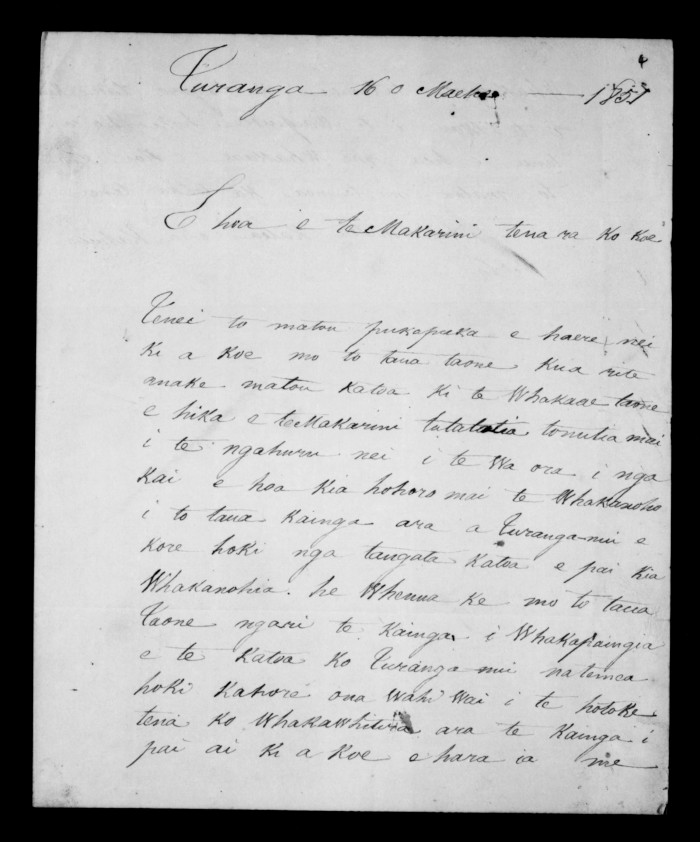 4
Turanga 16 o Maehe — 1851
E hoa e te Makarini tena ra ko koe
Tenei to matou pukapuka e haere nei
ki a koe mo to taua taone kua rite
anake matou katoa ki te Whakaae taone
e hika e te Makarini tutatutia tonutia mai
i te ngahuru nei i te wa ora i nga
kai e hoa kia hohoro mai te Whakanoho
i to taua kainga ara a Turanga-nui e
kore hoki nga tangata katoa e pai kia
Whakanohia. he Whenua ke mo to taua
Taone ngari te kainga i Whakapaingia
e te katoa ko Turanga-nui natemea
hoki kahore ona wahi wai i te hotoke
tena ko Whakawhitira ara te kainga i
pai ai ki a koe ehara ia me